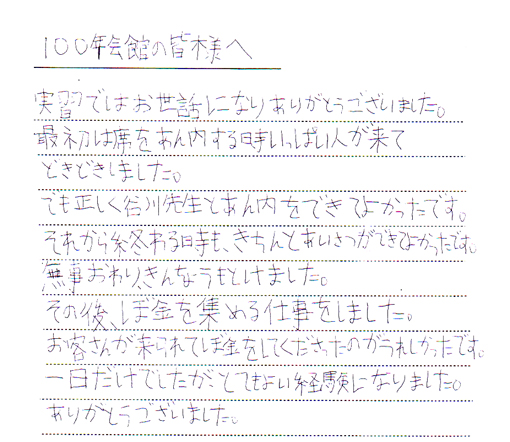 100年会館の皆様へ
実習ではお世話になりありがとうございました。
最初は席をあん内する時いっぱい人が来て
どきどきしました。
でも正しく谷川先生とあん内をできてよかったです。
それから終わる時も、きちんとあいさつができてよかったです。
無事おわりきんちょうもとけました。
その後、ぼ金を集める仕事をしました。
お客さんが来られてぼ金をしてくださったのがうれしかったです。
一日だけでしたがとてもよい経験になりました。
ありがとうございました。